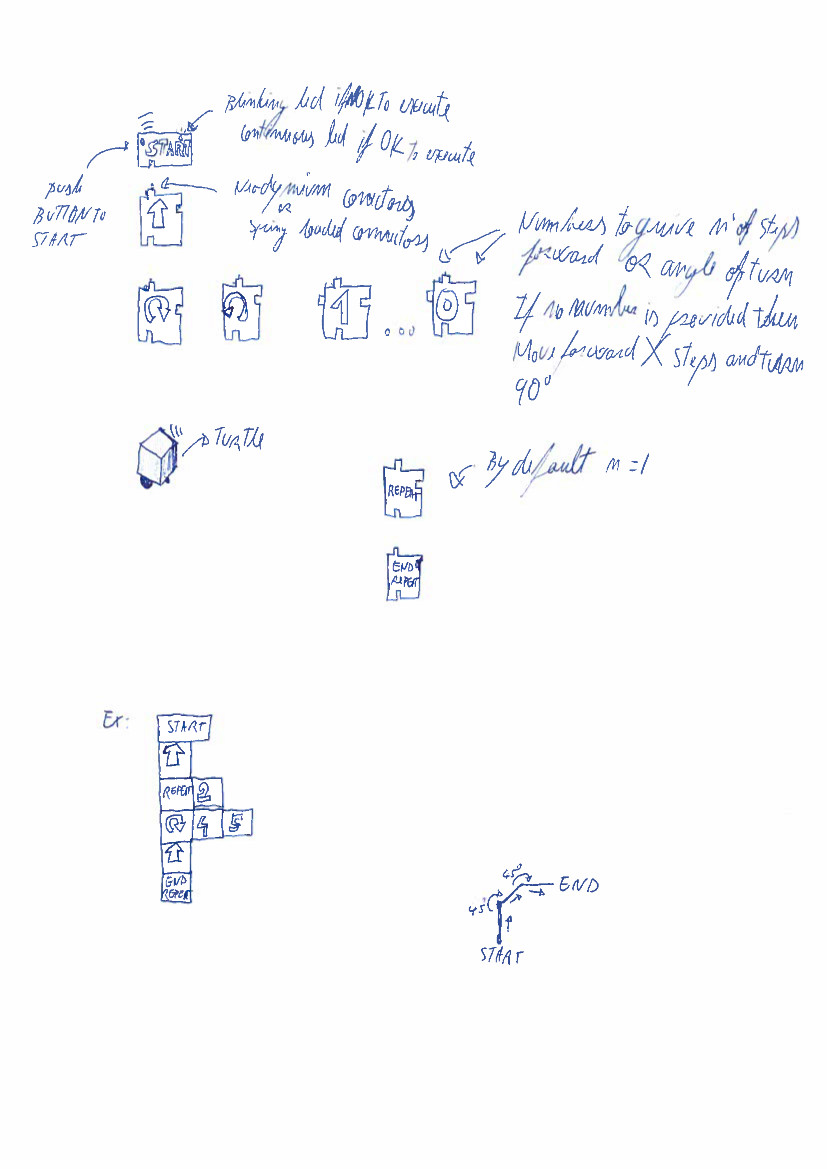 Blinking led if NOK to execute
continuous led if OK to execute
START
push
BUTTON TO
START
Neodymium conectors
or
spring loaded connectors
Numbers to give nº of steps
forward OR angle of turn
If no number is provided then
Move forward X steps and turn
90º
1 ... 0
TURTLE
By default n = 1
REPEAT
END
REPEAT
Ex:
START
REPEAT 2
4 5
END
REPEAT
45º
45º
END
START